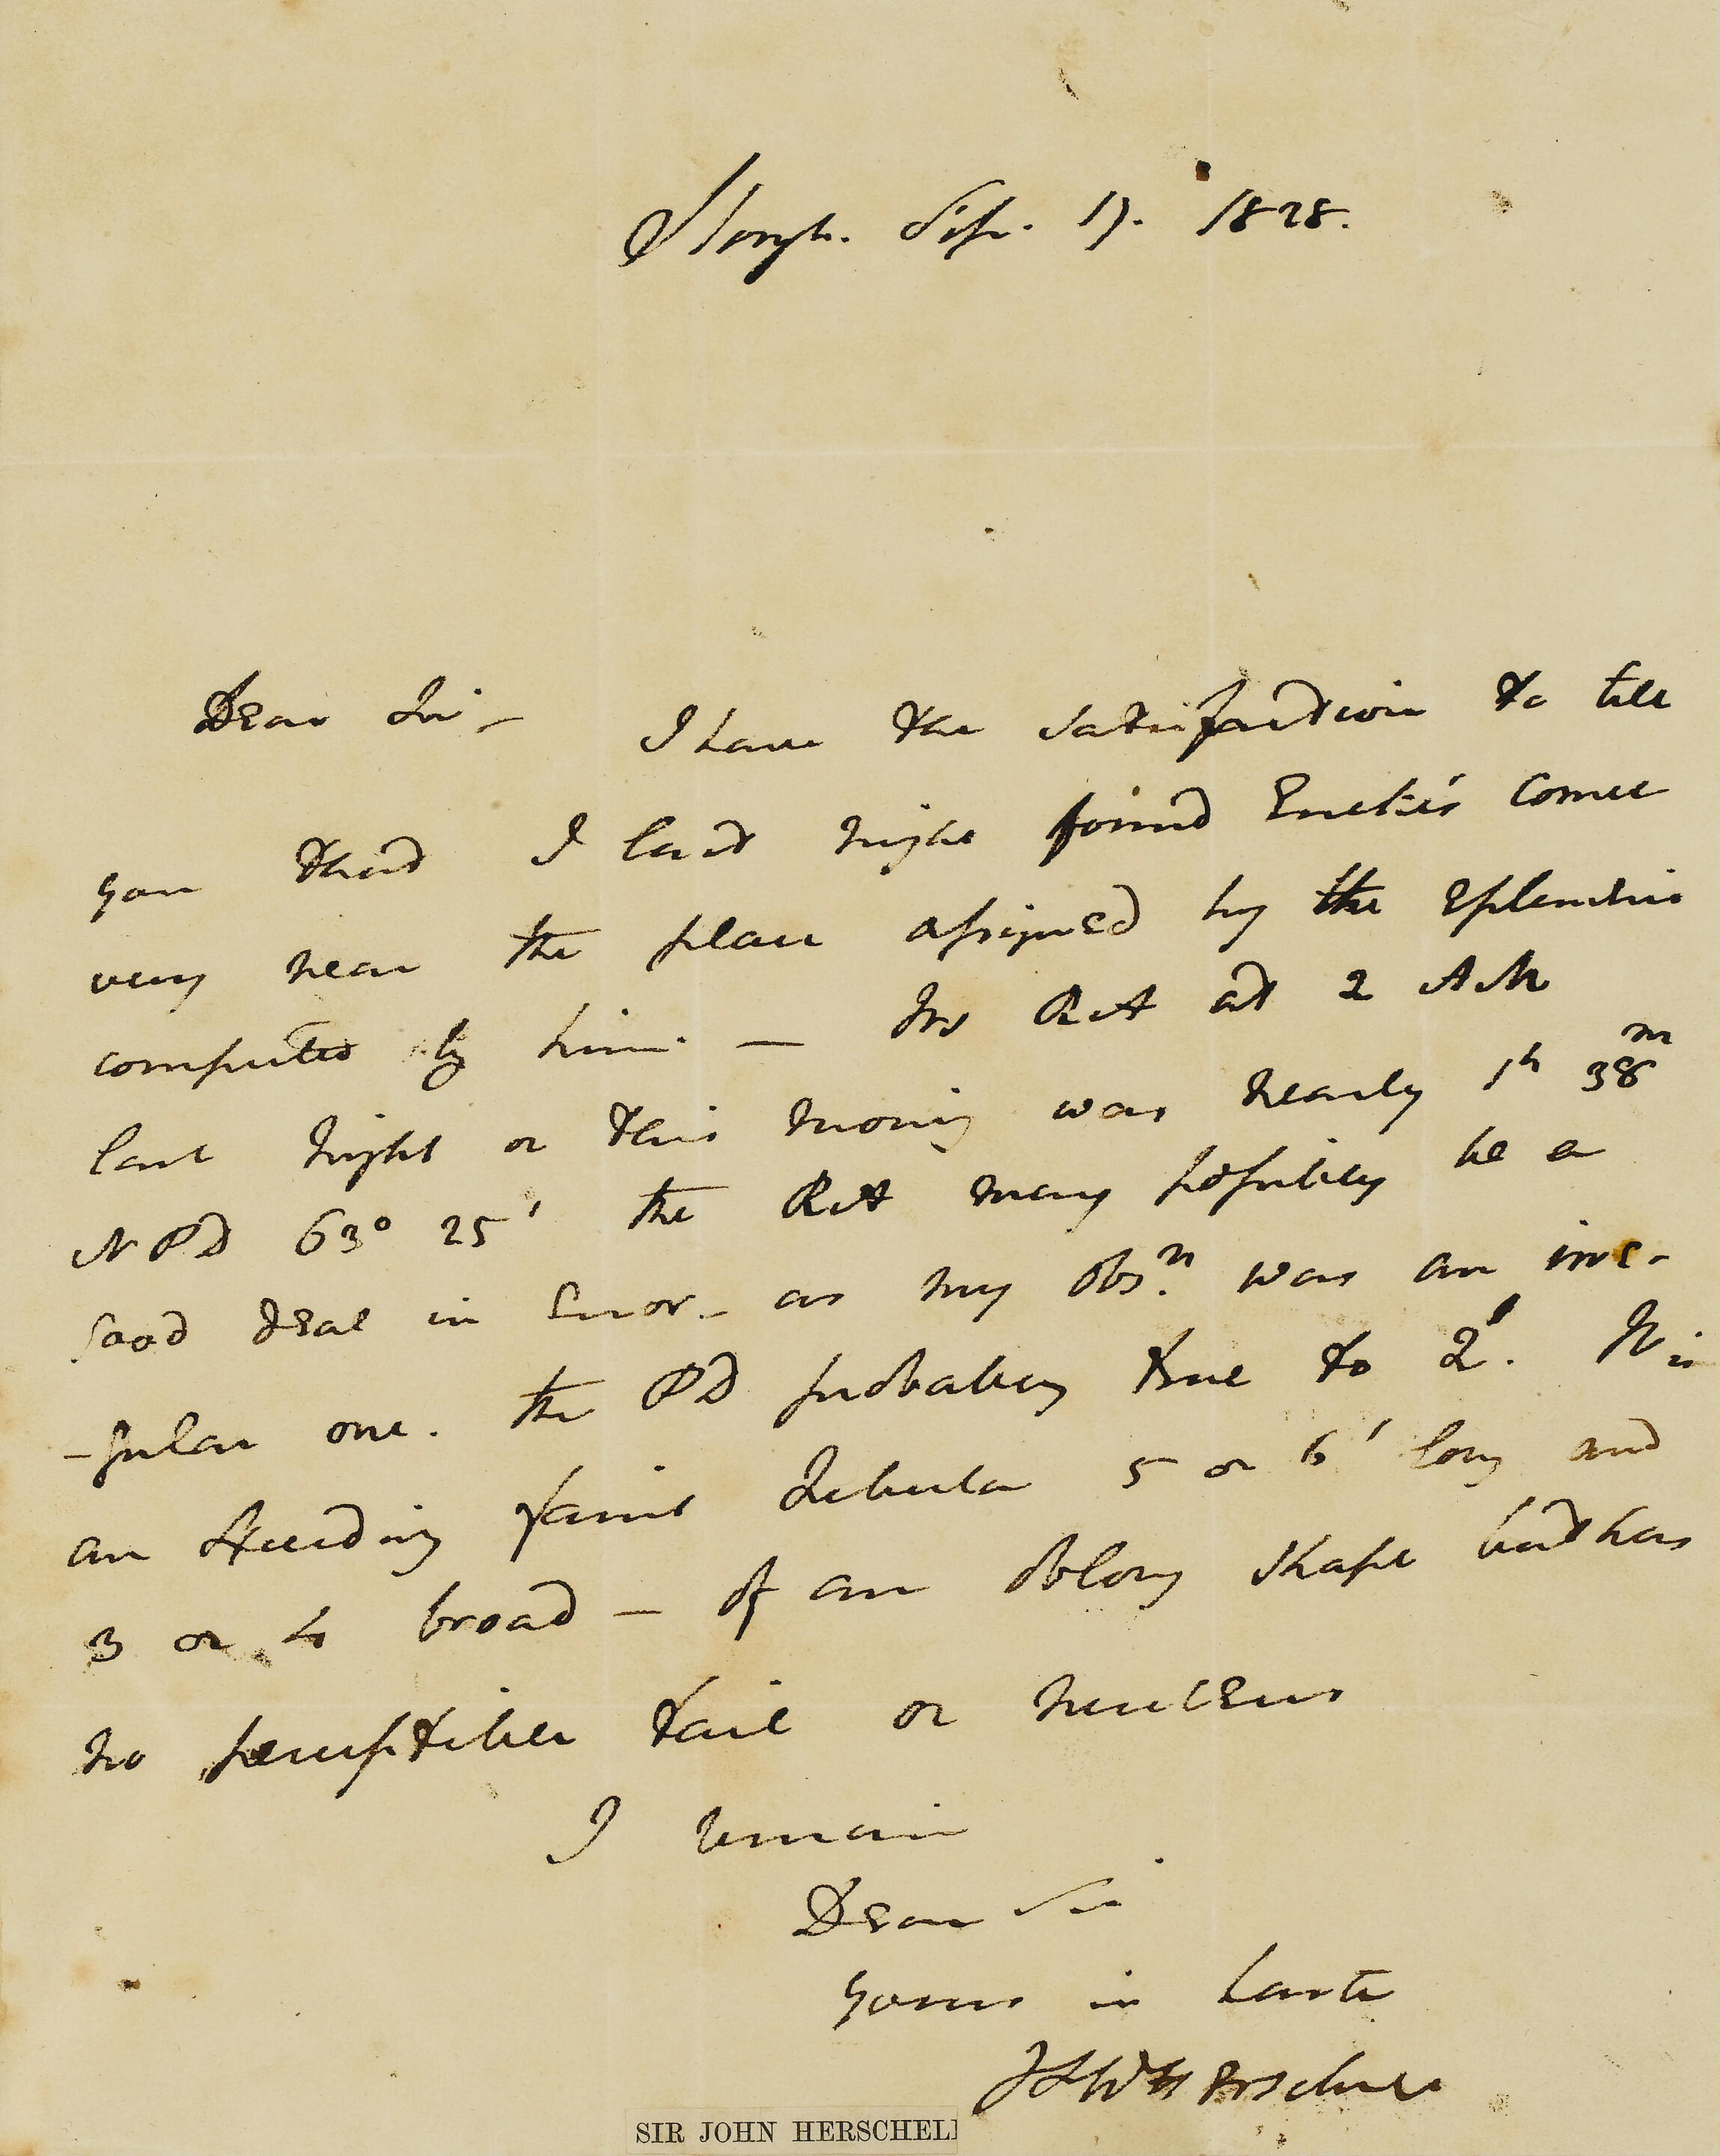 Slough. Sep. 17. 1828.
Dear Sir – I have the satisfaction to tell
you that I last night found Encke's Comet
very near the place assigned by the Ephemeris
computed by him. — Its RA at 2 AM
last night or this morning was nearly 1h 38m
NPD 63° 25' The RA may possibly be a
good deal in error – as my obsn. was an irre-
-gular one. The PD probably true to 2'. It is
an exceeding faint Nebula 5 or 6' long and
3 or 4 broad — of an oblong shape but has
no perceptible tail or nucleus
I remain
Dear Sir
yours in haste
JFW Herschel
SIR JOHN HERSCHEL